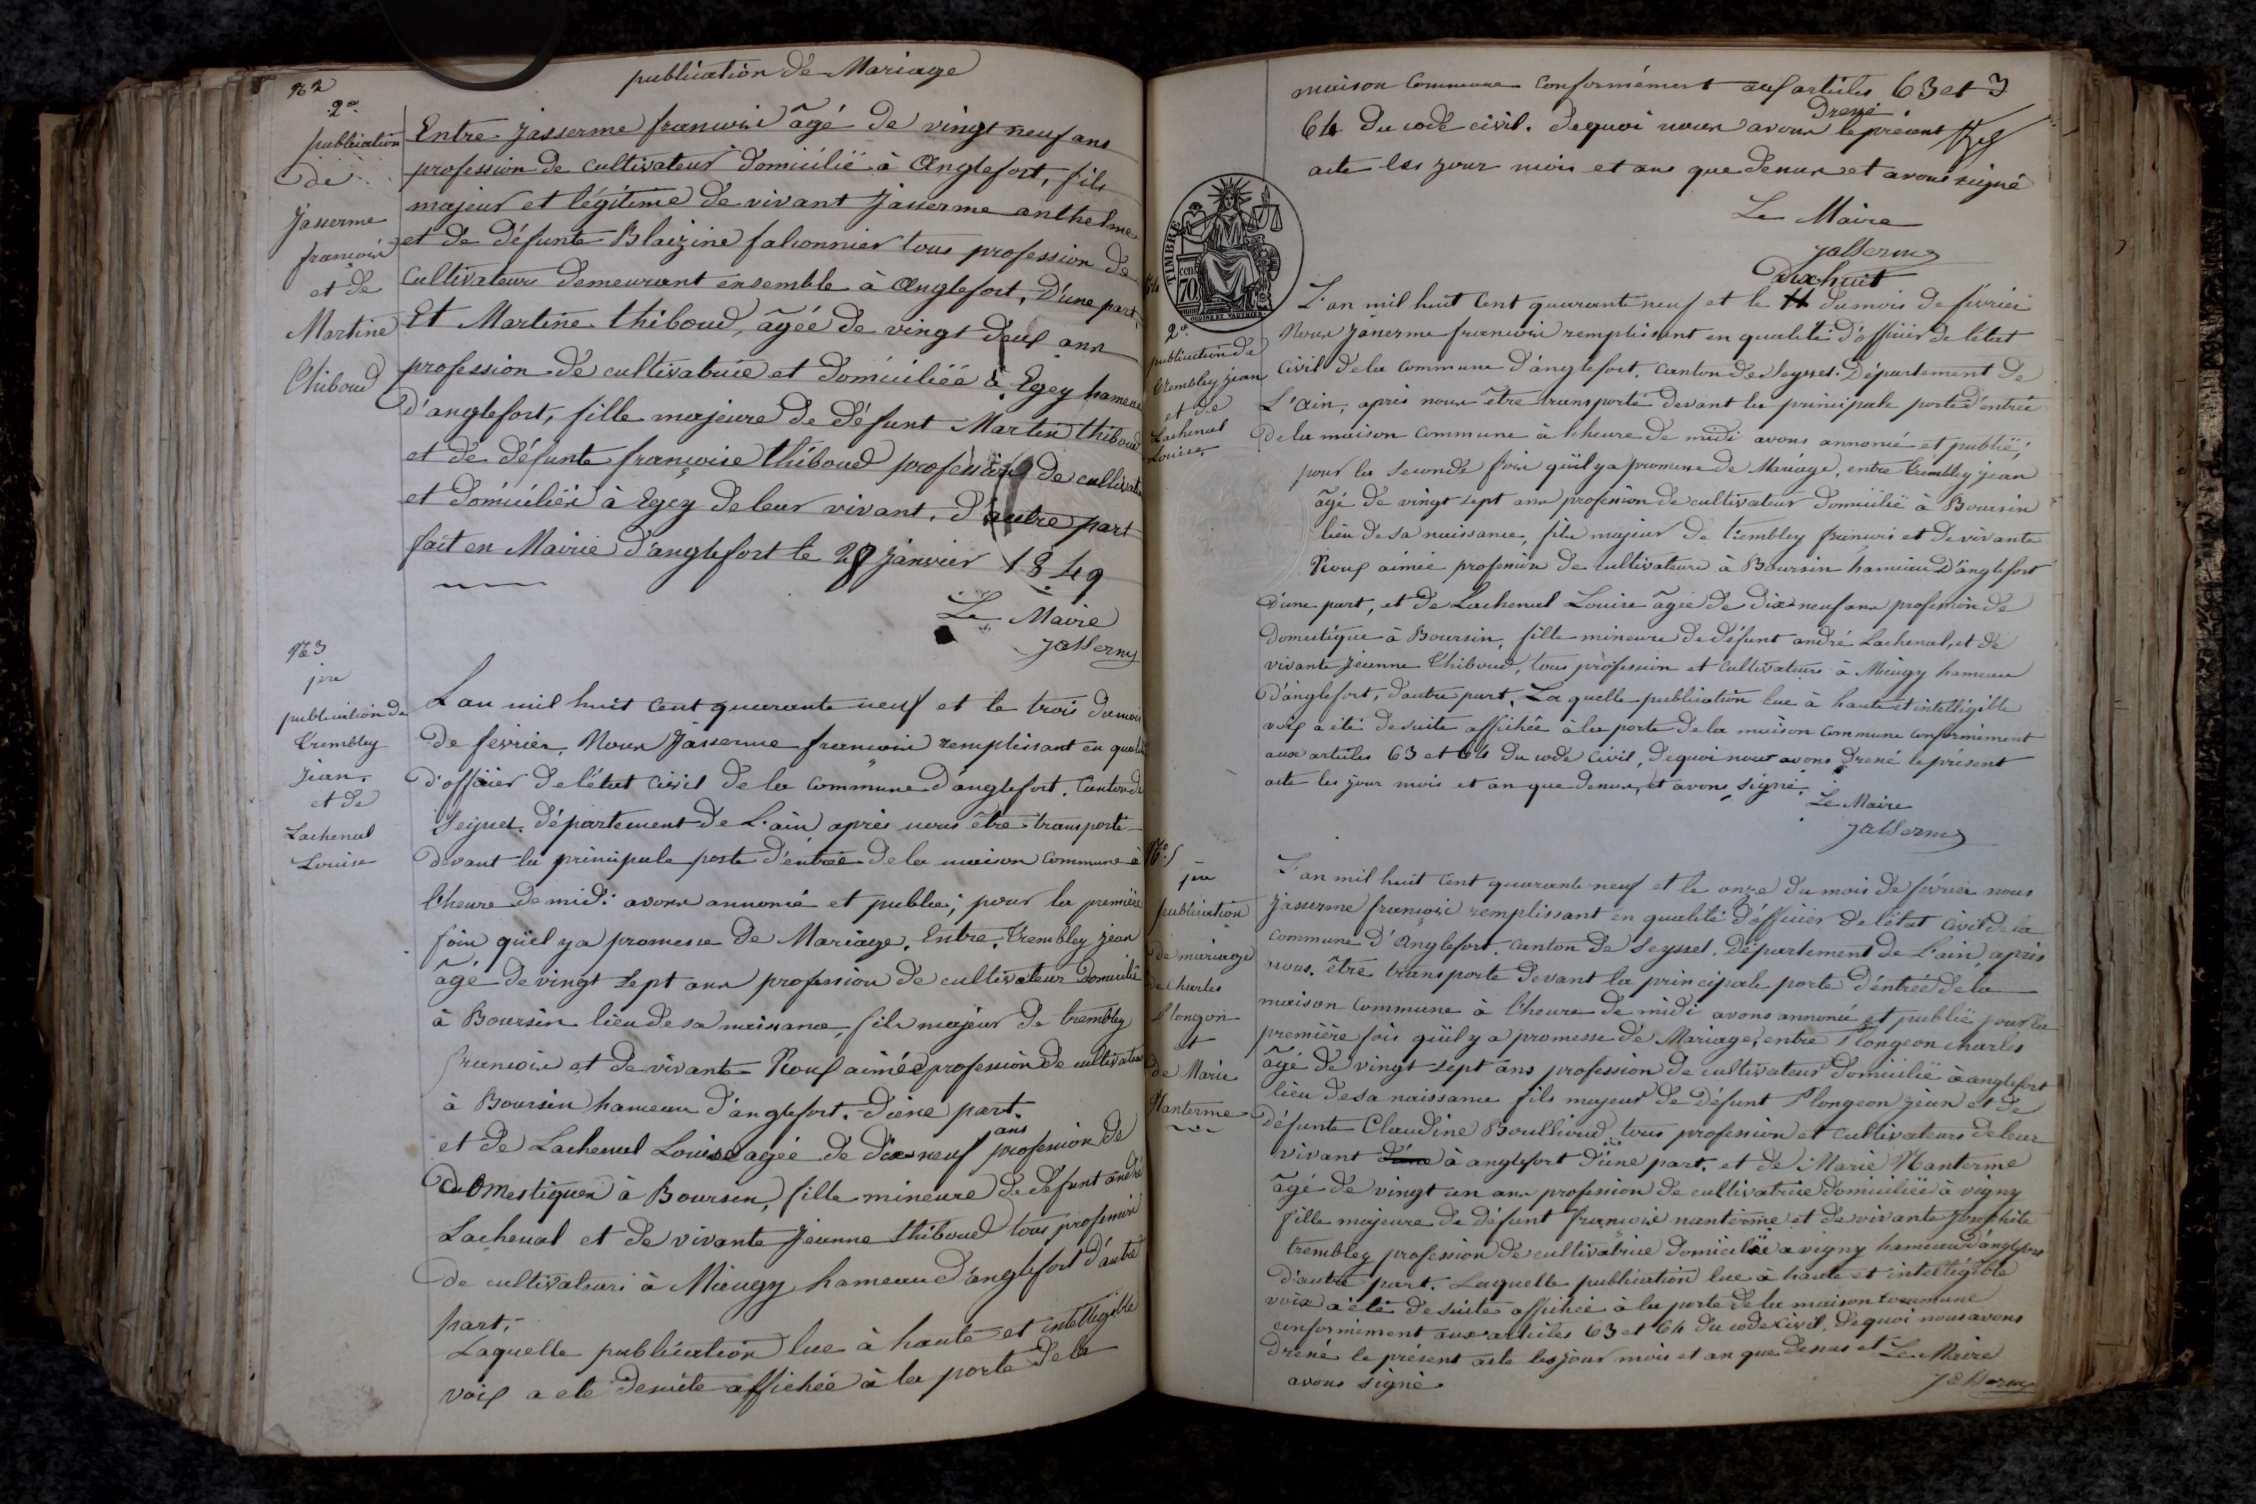 publication de Mariage
№ 2
2e
publication
de
Jasserme
francois
et de
Martine
Thiboud
Entre jasserme francois âgé de vingt neuf ans
profession de cultivateur domicilié à Anglefort, fils
majeur et légitime de vivant Jasserme anthelme
et de défunte Blaizine falconnier tous profession de
cultivateurs demeurant ensemble à Anglefort, D'une part,
Et Martine thiboud, âgée de vingt deux ans
profession de cultivatrice et domiciliée à Egey hameau
d'anglefort, fille majeure de défunt Martin thiboud
et de défunte françoise thiboud profession de cultivat
et domiciliés à Egey de leur vivant, d'autre part
fait en Mairie d'anglefort le 28 janvier 1849
Le Maire
Jasserme
№ 3
1re
publication de
Trembley
Jean
et de
Lachenal
Louise
L'an mil huit cent quarante neuf et le trois du mois
de fevrier. Nous Jasserme francois remplissant en qualité
d'officier de l'état civil de la commune d'anglefort. Canton de
Seyssel. département de L'ain, après nous être transporté
devant la principale porte d'entrée de la maison commune à
l'heure de midi avons annoncé et publié, pour la première
fois qu'il y a promesse de Mariage. Entre. Trembley jean
âgé de vingt sept ans profession de cultivateur domicilié
à Boursin lieu de sa naissance, fils majeur de trembley
francois et de vivante Roux aimée profession de cultivateurs
à Boursin hameau d'anglefort. d'une part.
et de Lachenal Louise agée de dix neuf ans profession de
domestique à Boursin, fille mineure de défunt andré
Lachenal et de vivante Jeanne thiboud tous profession
de cultivateurs à Mieugy hameau d'anglefort d'autre
part.
Laquelle publication lue à haute et intelligible
voix a eté desuite affichée à la porte de la
maison commune conformément aux articles 63 et
64 du code civil. dequoi nous avons dressé le présent
acte les jour mois et ans que dessus et avons signé
Le Maire
Jasserme
TIMBRE
70
2e
publication de
Trembley jean
et de
Lachenal
Louise
dix huit
L'an mil huit cent quarante neuf et le du mois de février
Nous Jasserme francois remplissant en qualité d'officier de l'état
civil de la commune d'anglefort. canton de Seyssel. Département de
L'Ain, après nous être transporté devant la principale porte d'entrée
de la maison commune à l'heure de midi avons annoncé et publié,
pour la seconde fois qu'il y a promesse de Mariage, entre trembley jean
âgé de vingt sept ans profession de cultivateur domicilié à Boursin
lieu de sa naissance, fils majeur de trembley francois et de vivante
Roux aimée profession de cultivateurs à Boursin hameau D'anglefort
d'une part, et de Lachenal Louise âgée de dix neuf ans profession de
domestique à Boursin, fille mineure de défunt andré Lachenal, et de
vivante Jeanne Thiboud, tous profession et cultivateurs à Mieugy hameau
d'anglefort, d'autre part, La quelle publication lue à haute et intelligible
voix a été desuite affichée à la porte de la maison commune conformément
aux articles 63 et 64 du code civil, dequoi nous avons dressé le présent
acte les jour mois et an que dessus, et avons signé.
Le Maire
Jasserme
№ 5
1re
publication
de mariage
de charles
Plongon
et
de Marie
Nanterme
L'an mil huit cent quarante neuf et le onze du mois de février nous
Jasserme françois remplissant en qualité d'officier de l'état civil de la
commune d'Anglefort. canton de Seyssel. Département de L'ain, après
nous être transporté devant la principale porte d'entrée de la
maison commune à l'heure de midi avons annoncé et publié pour la
première fois qu'il y a promesse de Mariage, entre Plongeon charles
âgé de vingt sept ans profession de cultivateur domicilié à anglefort
lieu de sa naissance fils majeur de Défunt Plongeon jean et de
défunte Claudine Boullioud tous profession et cultivateurs de leur
vivant d'une à anglefort d'une part, et de Marie Nanterme
âgé de vingt un ans profession de cultivatrice domiciliée à vigny
fille majeure de Défunt françois nanterme et de vivante Josephte
trembley profession de cultivatrice domiciliée a vigny hameau d'anglefort
d'autre part. Laquelle publication lue à haute et intelligible
voix a été desuite affichée à la porte de la maison commune
conformément aux articles 63 et 64 du code civil. dequoi nous avons
dressé le présent acte les jour mois et an que dessus et
avons signé
Le Maire
Jasserme